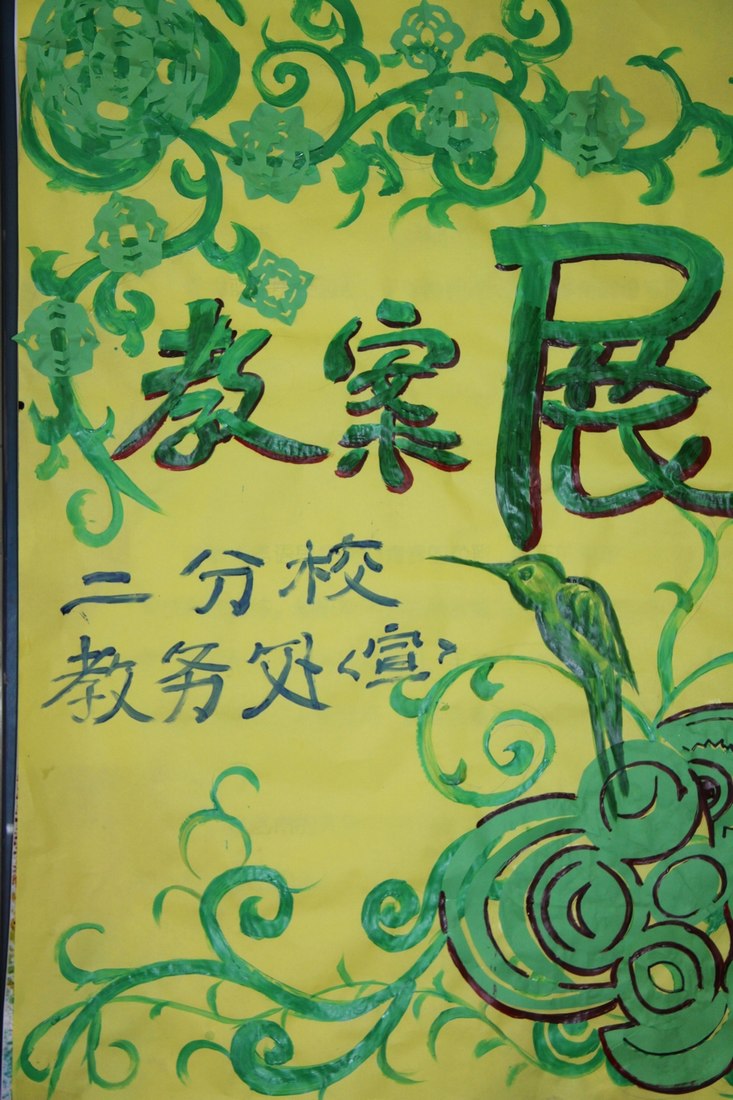 教案展
二分校
教务处<宣>